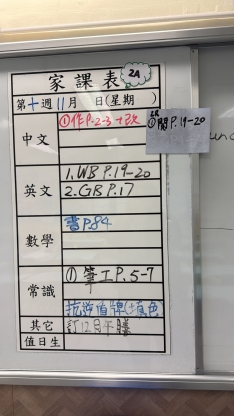 家課表
2A
第十週11月 日(星期 )
中文
①作P.2-3+改
2R
①閱P.19-20
英文
1.WB P.19-20
2.GB P.17
數學
書P.84
常識
①筆工P.5-7
抗逆直牌(+填色
其它
訂12月午膳
值日生